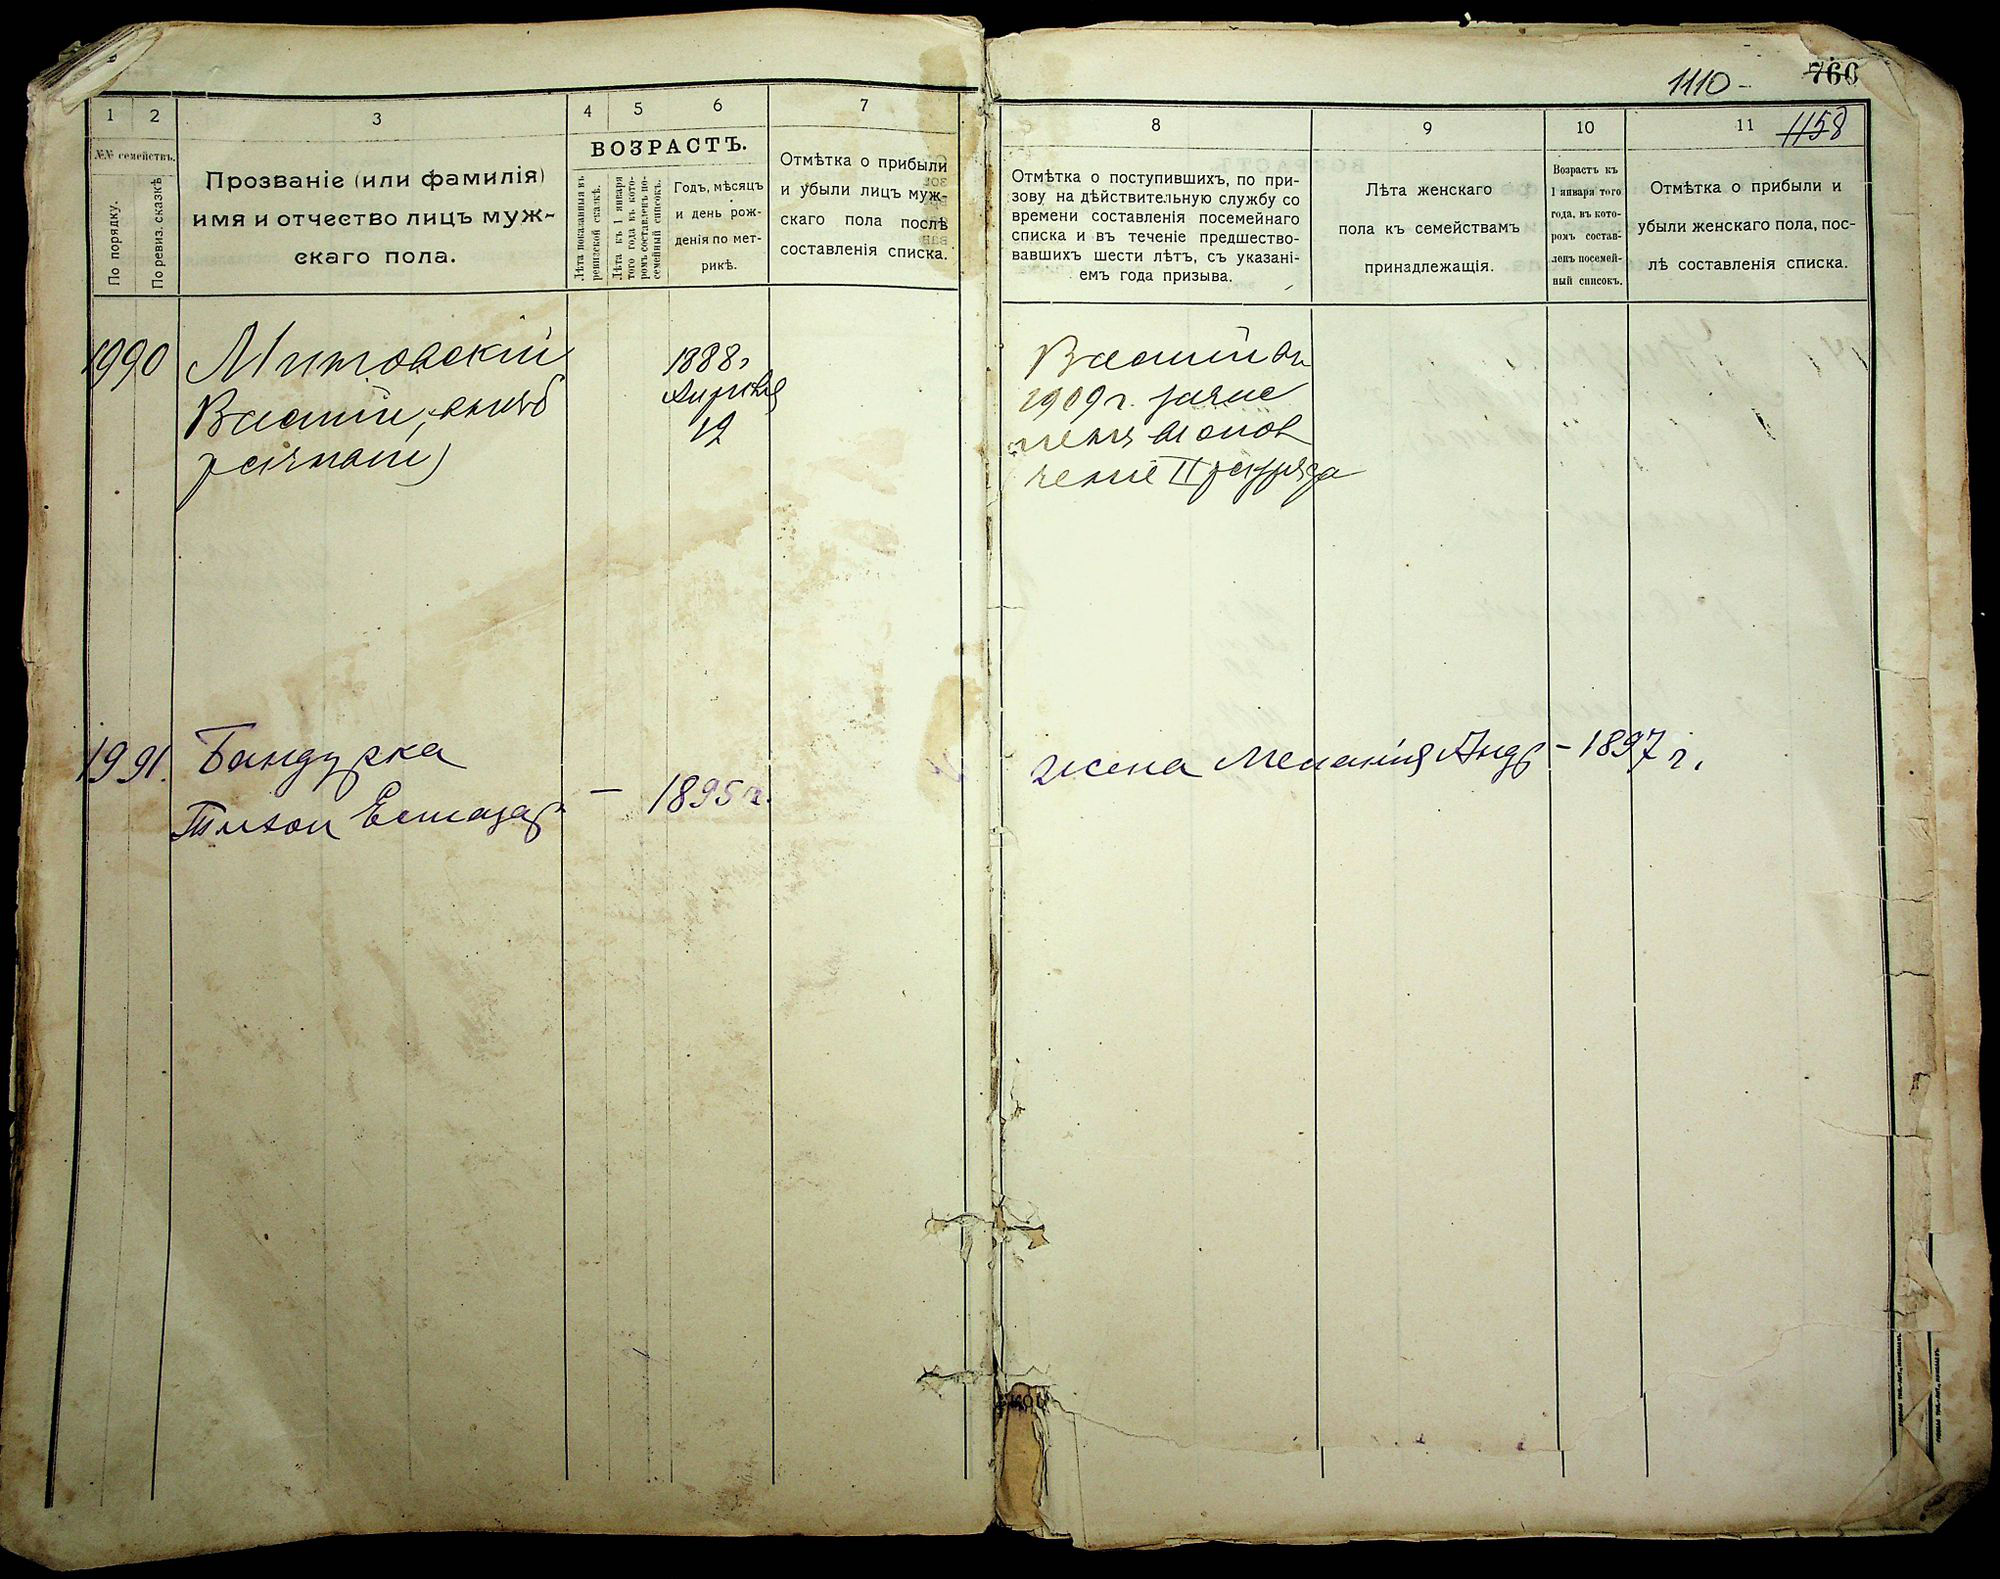 1 2 3 4 5 6 7
№№ семействъ.
По порядку.
По ревиз. сказкѣ
Прозваніе (или фамилія)
имя и отчество лицъ муж-
скаго пола.
ВОЗРАСТЪ.
Лѣта показанныя въ
ревизской сказкѣ.
Лѣта къ 1 января
того года въ кото-
ромъ составленъ по-
семейный списокъ.
Годъ, мѣсяцъ
и день рож-
денія по мет-
рикѣ.
Отмѣтка о прибыли
и убыли лицъ муж-
скаго пола послѣ
составленія списка.
1990 Митовскій
Василій,
1888 г
Апрѣля
12
1991. Бандурка
Тихон — 1895 г.
1110 - 766
8 9 10 11 1158
Отмѣтка о поступившихъ, по при-
зову на дѣйствительную службу со
времени составленія посемейнаго
списка и въ теченіе предшество-
вавшихъ шести лѣтъ, съ указані-
емъ года призыва.
Лѣта женскаго
пола къ семействамъ
принадлежащія.
Возрастъ къ
1 января того
года, въ кото-
ромъ состав-
ленъ посемей-
ный списокъ.
Отмѣтка о прибыли и
убыли женскаго пола, пос-
лѣ составленія списка.
Василій въ
1909 г. зачис
ленъ в ополе
ченіе II разряда
жена Мелания Андр – 1897 г.